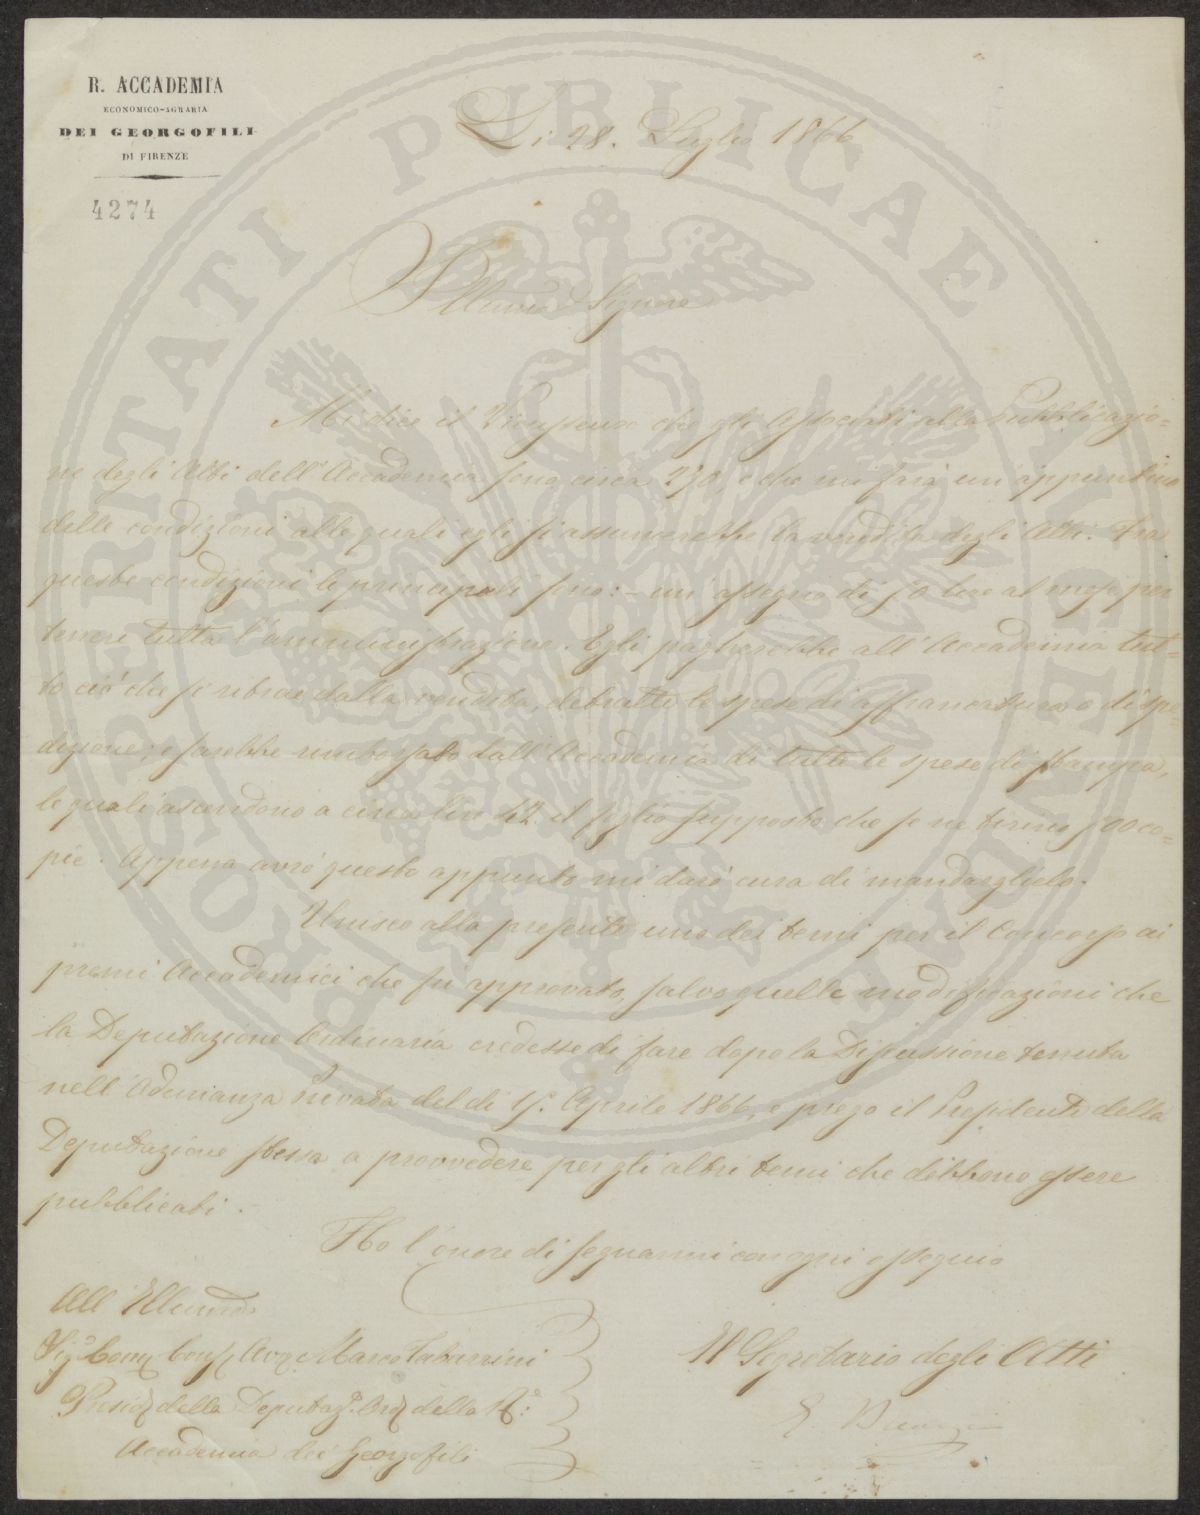 R. ACCADEMIA
ECONOMICO-AGRARIA
DEI GEORGOFILI
DI FIRENZE
4274
PROSPERITATI PUBLICAE AUGENDAE
Di 28. Luglio 1866
Illmo Signore
Mi dice il Vieusseux che gli associati alla Pubblicazio=
ne degli Atti dell'Accademia sono circa 270, e che mi farà un appuntino
delle condizioni alle quali egli si assumerebbe la vendita degli Atti. Fra
queste condizioni le principali sono: - un assegno di 50 lire al mese per
tenere tutta l'amministrazione. Egli pagherebbe all'Accademia tut=
to ciò che si ritrae dalla vendita, detratte le spese di affrancatura e di spe
dizione; e sarebbe rimborsato dall'Accademia di tutte le spese di stampa,
le quali ascendono a circa lire 42 il foglio supposto che se ne tirino 500 co=
pie. Appena avrò questo appunto mi darò cura di mandarglielo.
Unisco alla presente uno dei temi per il Concorso ai
premi Accademici che fu approvato, salvo quelle modificazioni che
la Deputazione Ordinaria credesse di fare dopo la Discussione tenuta
nell'Adunanza Privata del dì 15. Aprile 1866, e prego il Presidente della
Deputazione stessa a provvedere per gli altri temi che debbono essere
pubblicati.
Ho l'onore di segnarmi con ogni ossequio
All'Illmo
Sigr. Comm Cons Avv Marco Tabarrini
Presid della Deputaz. Ord della R.
Accademia dei Georgofili
Il Segretario degli Atti